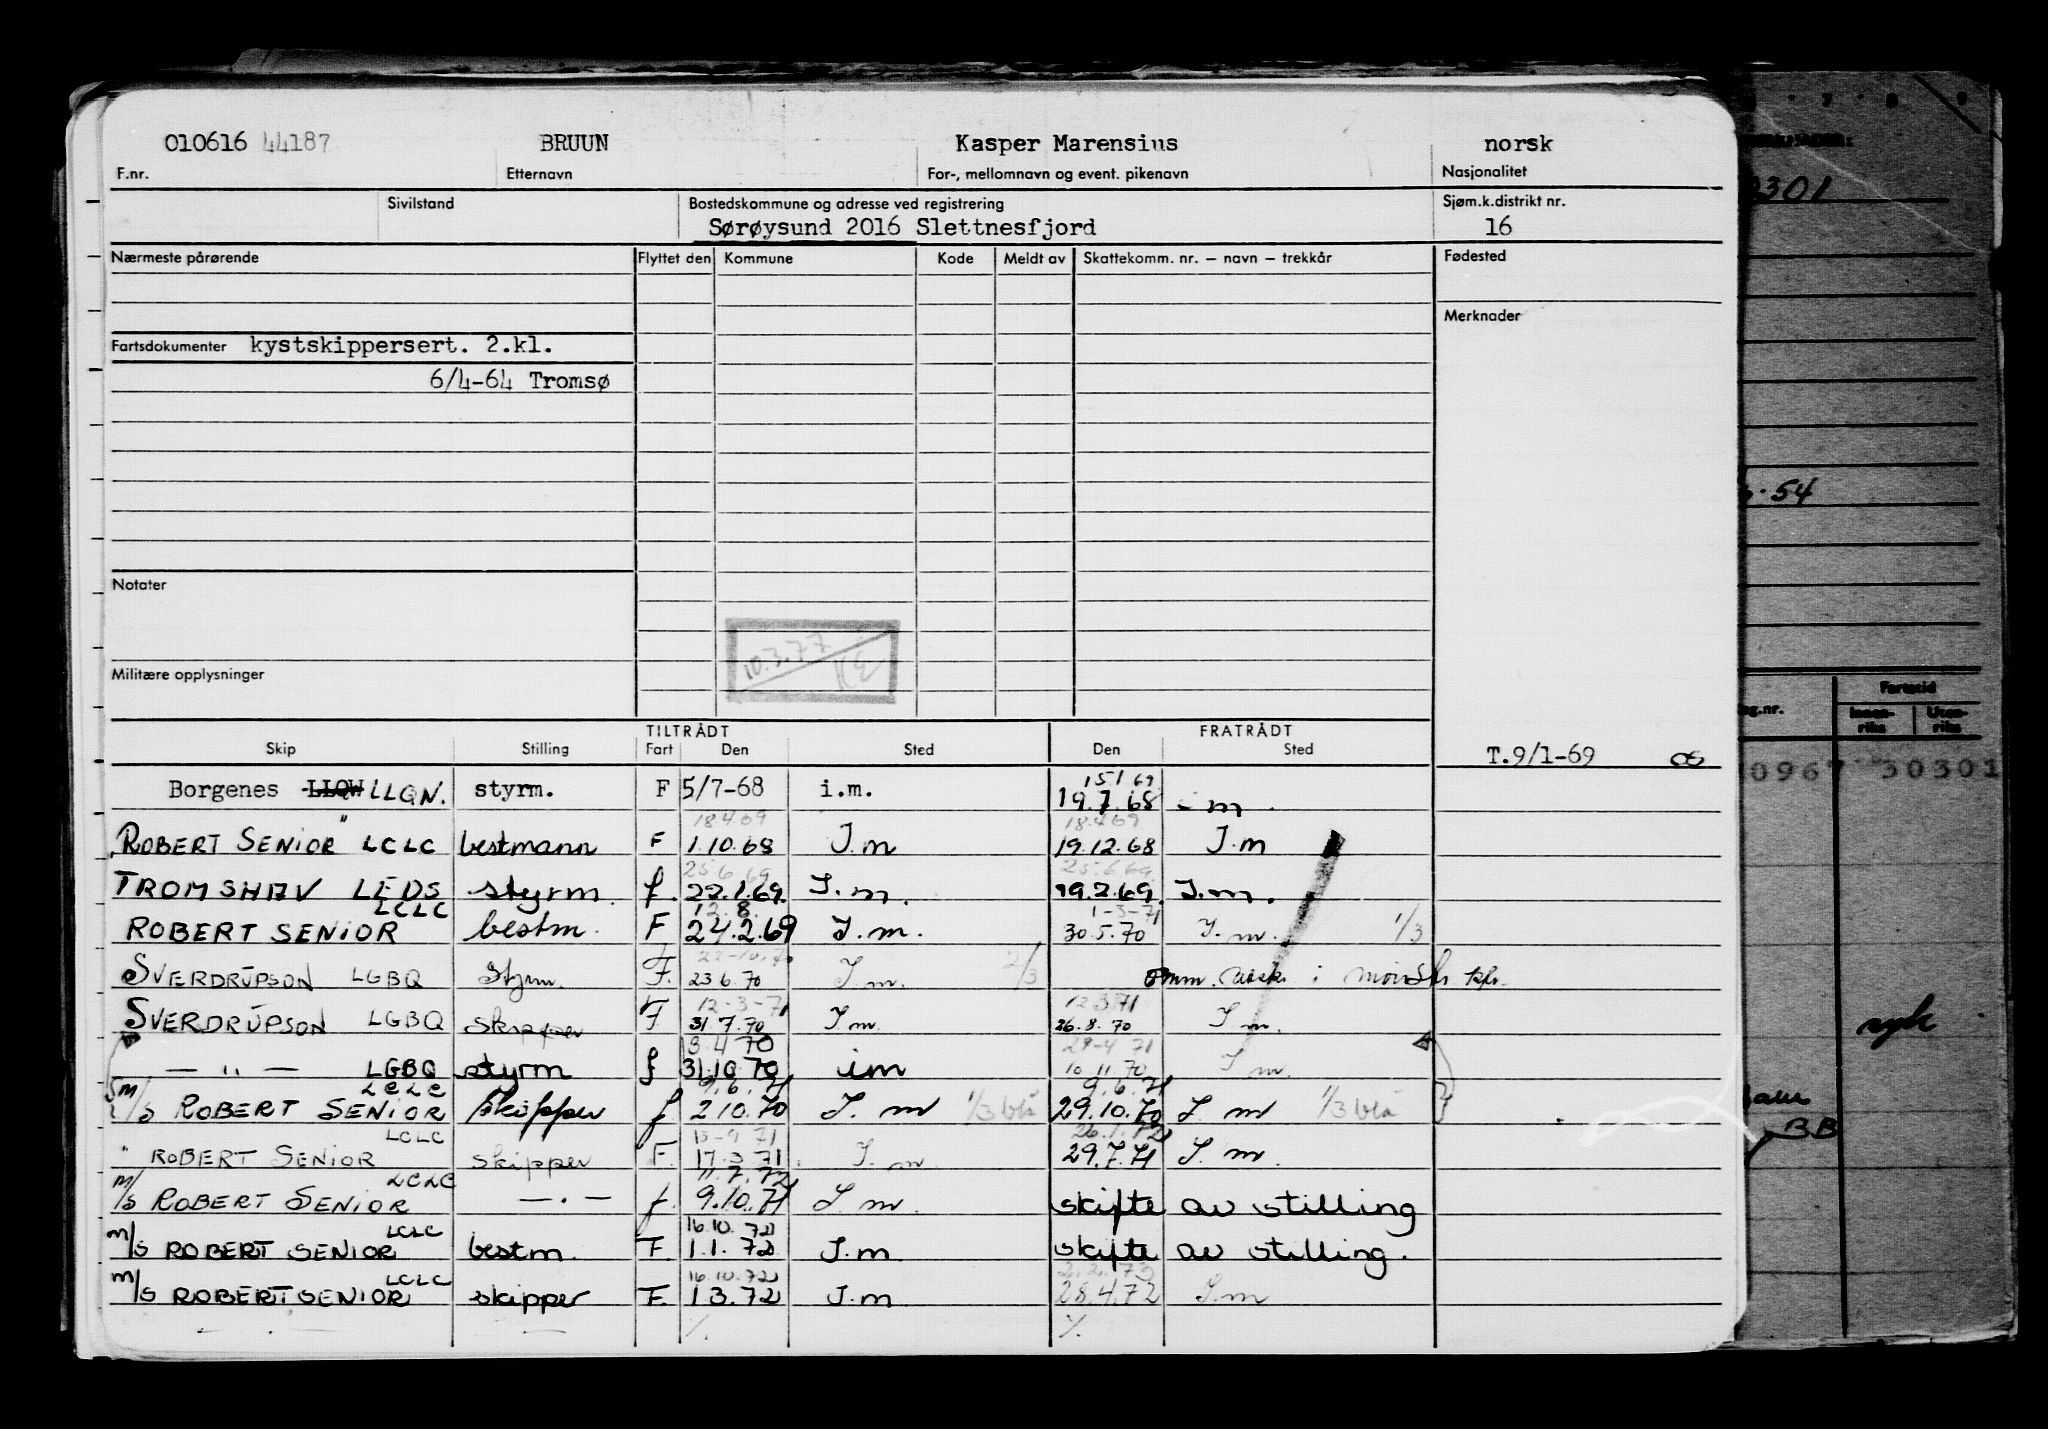 010616 44187 BRUUN Kasper Marensius norsk
F.nr. Etternavn For-, mellomnavn og event. pikenavn Nasjonalitet
Sivilstand Bostedskommune og adresse ved registrering Sjøm.k.distrikt nr.
Sørøysund 2016 Slettnesfjord 16
Nærmeste pårørende Flyttet den Kommune Kode Meldt av Skattekomm. nr. – navn – trekkår Fødested
Merknader
Fartsdokumenter kystskippersert. 2.kl.
6/4-64 Tromsø
Notater
10.3.77
KE
Militære opplysninger
TILTRÅDT FRATRÅDT
Skip Stilling Fart Den Sted Den Sted
T.9/1-69
15/1 69
Borgenes LLQW LLQN. styrm. F 5/7-68 i.m. 19.7.68 i m.
18.4 69 18.4 69
"ROBERT SENIOR" LCLC bestmann F 1.10.68 I.m 19.12.68 I.m
25 6 69 25.6 69
TROMSHAV LEDS styrm. f. 22.1.69. I.m. 19.2.69. I.m.
LCLC 12.8. 1-3-71
ROBERT SENIOR bestm. F 24.2.69 I.m. 30.5.70 I.m. 1/3
22-10.70
SVERDRUPSON LGBQ Styrm. F. 23 6.70 I.m. 2/3
12-3-71 12 3 71
SVERDRUPSON LGBQ skipper F. 31 7.70 I m. 26.8.70 I m.
13.4 70 29-4 71
— " — LGBQ styrm f 31.10.70 im 10.11.70 I m.
LCLC 9.6.71 9.6.71
m/s ROBERT SENIOR skipper f 2 10.70 I. m 1/3 blå 29.10.70 I. m 1/3 blå
LCLC 13-9 71 26.1.72
" ROBERT SENIOR skipper F. 17.3 71. I.m. 29.7.71 I m.
LCLC 11.7.72
m/s ROBERT SENIOR — . — f. 9.10.71 I.m. skifte av stilling
LCLC 16.10.72
m/s ROBERT SENIOR bestm. F. 1.1.72 I.m skifte av stilling.
LCLC 16.10.72 2.2.73
m/s ROBERT SENIOR skipper F. 1 3.72 I.m 28.4.72 I.m
7 8 9
2301
.54
Fartstid
Innen-riks Uten-riks
0967 30301
BB